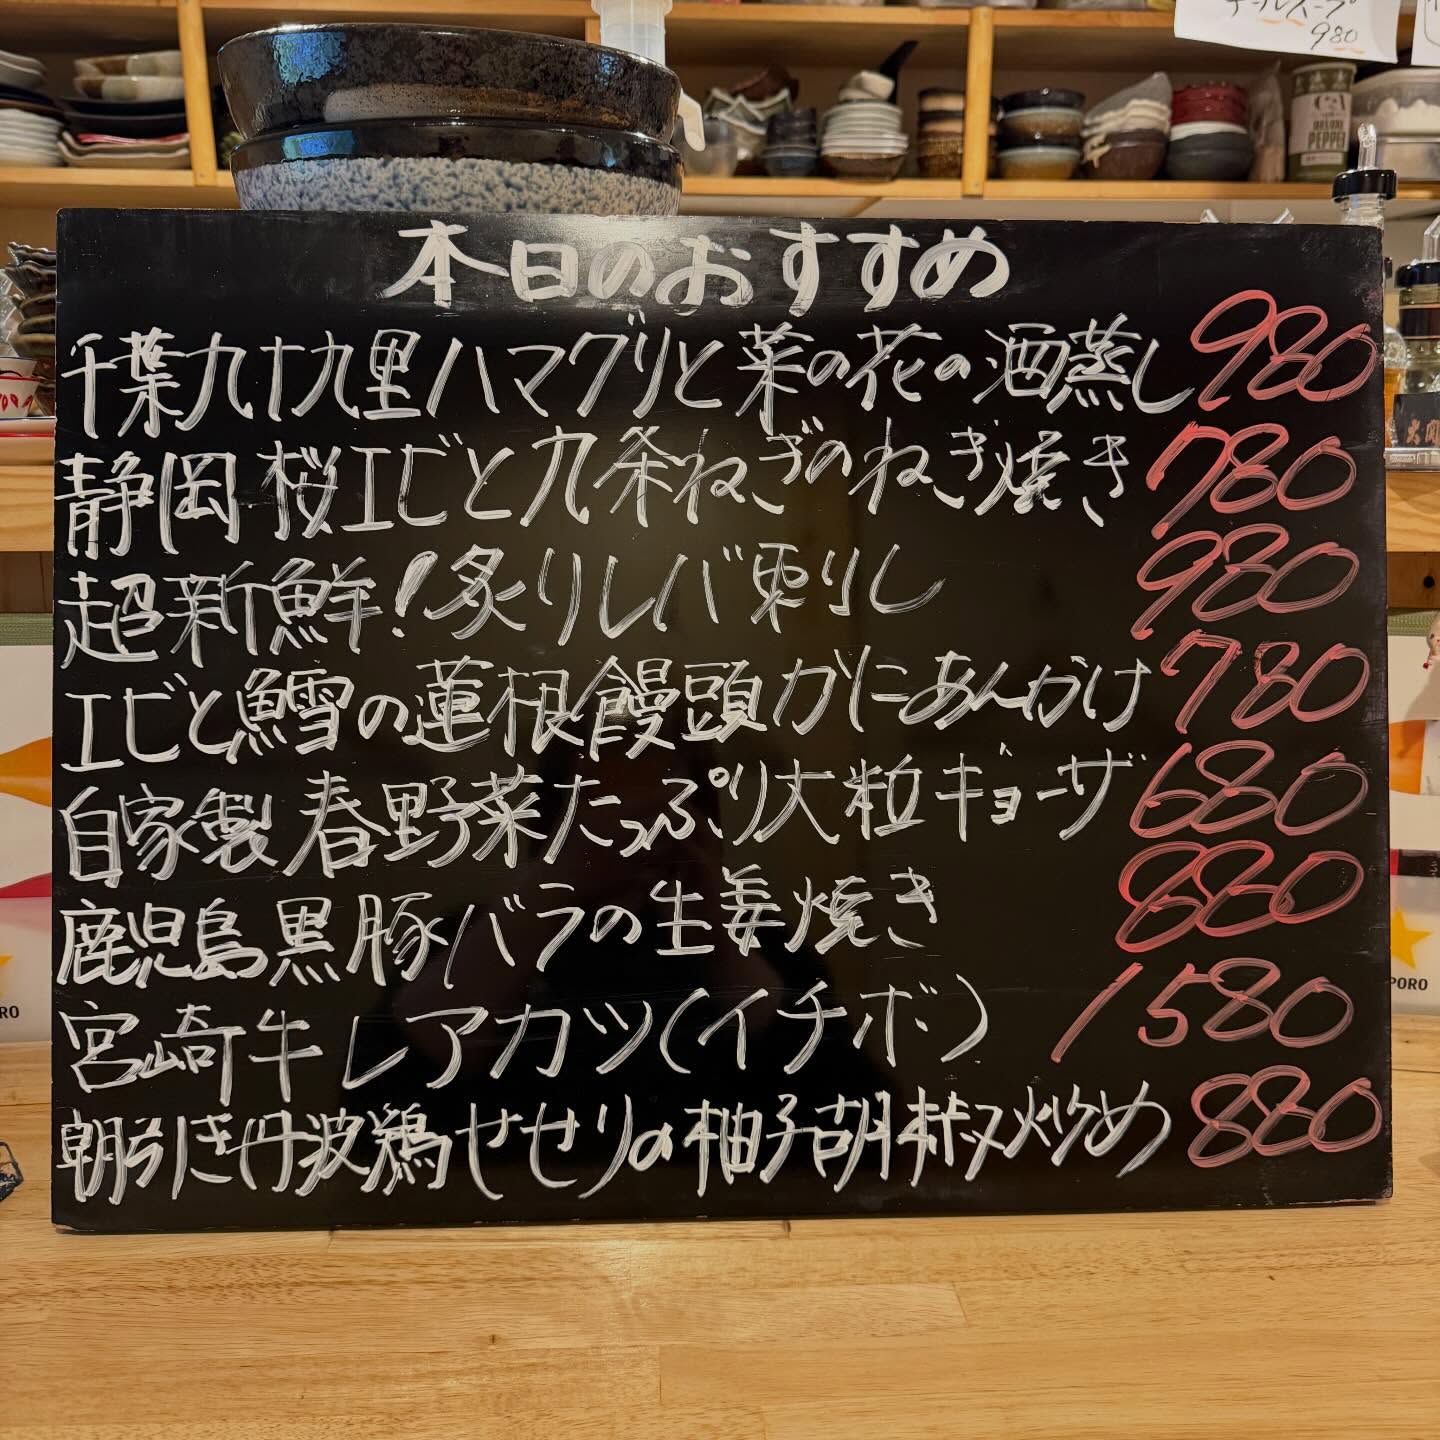 テールスープ
980
DELUXE
PEPPER
本日のおすすめ
千葉九十九里ハマグリと菜の花の酒蒸し 980
静岡 桜エビと九条ねぎのねぎ焼き 780
超新鮮!炙りレバ刺し 980
エビと鱈の蓮根饅頭 かにあんかけ 780
自家製 春野菜たっぷり大粒ギョーザ 680
鹿児島黒豚バラの生姜焼き 880
宮崎牛 レアカツ(イチボ) 1580
朝引き丹波鶏せせりの柚子胡椒炒め 880
PORO